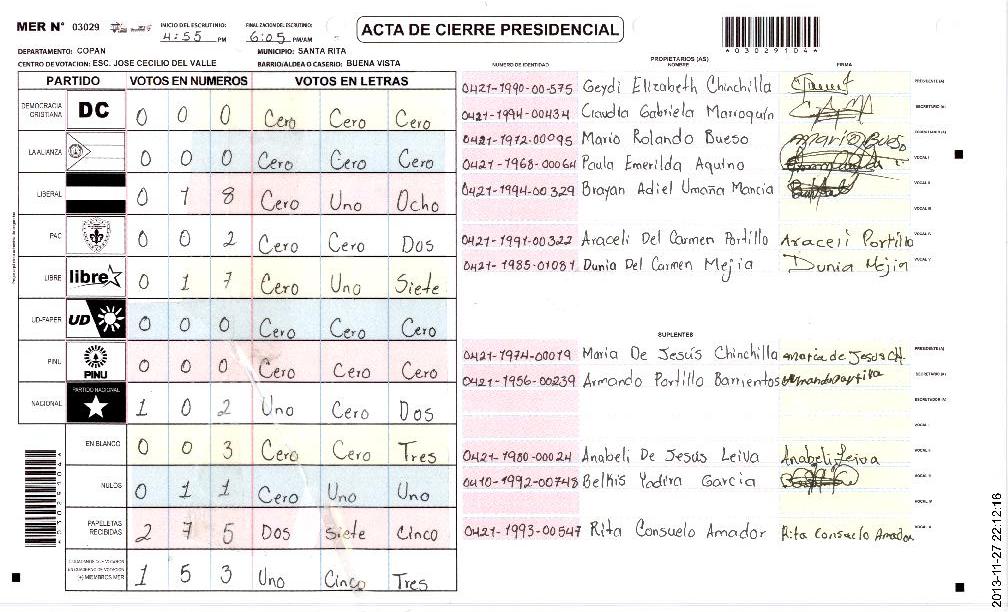 MER N° 03029
INICIO DEL ESCRUTINIO: 4:55 PM
FINALIZACION DEL ESCRUTINIO: 6:05 PM/AM
ACTA DE CIERRE PRESIDENCIAL
*03029104*
DEPARTAMENTO: COPAN
MUNICIPIO: SANTA RITA
CENTRO DE VOTACION: ESC. JOSE CECILIO DEL VALLE
BARRIO/ALDEA O CASERIO: BUENA VISTA
PARTIDO VOTOS EN NUMEROS VOTOS EN LETRAS
DEMOCRACIA CRISTIANA DC 0 0 0 Cero Cero Cero
LA ALIANZA 0 0 0 Cero Cero Cero
LIBERAL 0 1 8 Cero Uno Ocho
PAC 0 0 2 Cero Cero Dos
LIBRE libre 0 1 7 Cero Uno Siete
UD-FAPER UD 0 0 0 Cero Cero Cero
PINU PINU 0 0 0 Cero Cero Cero
NACIONAL PARTIDO NACIONAL 1 0 2 Uno Cero Dos
EN BLANCO 0 0 3 Cero Cero Tres
NULOS 0 1 1 Cero Uno Uno
PAPELETAS RECIBIDAS 2 7 5 Dos Siete Cinco
(+) MIEMBROS MER 1 5 3 Uno Cinco Tres
*03029104*
PROPIETARIOS (AS)
NUMERO DE IDENTIDAD NOMBRE FIRMA
0421-1990-00-575 Geydi Elizabeth Chinchilla PRESIDENTE(A)
0421-1994-00434 Claudta Gabriela Marroquín SECRETARIO (A)
0421-1972-00095 Mario Rolando Bueso Mario Bueso
0421-1968-00064 Paula Emerilda Aquino VOCAL I
0421-1994-00329 Brayan Adiel Umaña Mancia VOCAL II
VOCAL III
0421-1991-00322 Araceli Del Carmen Portillo Araceli Portillo VOCAL IV
0421-1985-01081 Dunia Del Carmen Mejia Dunia Mejia VOCAL V
SUPLENTES
0421-1974-00019 Maria De Jesús Chinchilla maria de Jesus CH. PRESIDENTE(A)
0421-1956-00239 Armando Portillo Barrientos Armando Portillo SECRETARIO (A)
ESCRUTADOR (A)
VOCAL I
0421-1980-00024 Anabeli De Jesús Leiva Anabeli Leiva VOCAL II
0410-1992-00748 Belkis Yadira Garcia VOCAL III
VOCAL IV
0421-1993-00547 Rita Consuelo Amador Rita Consuelo Amador VOCAL V
2013-11-27 22:12:16